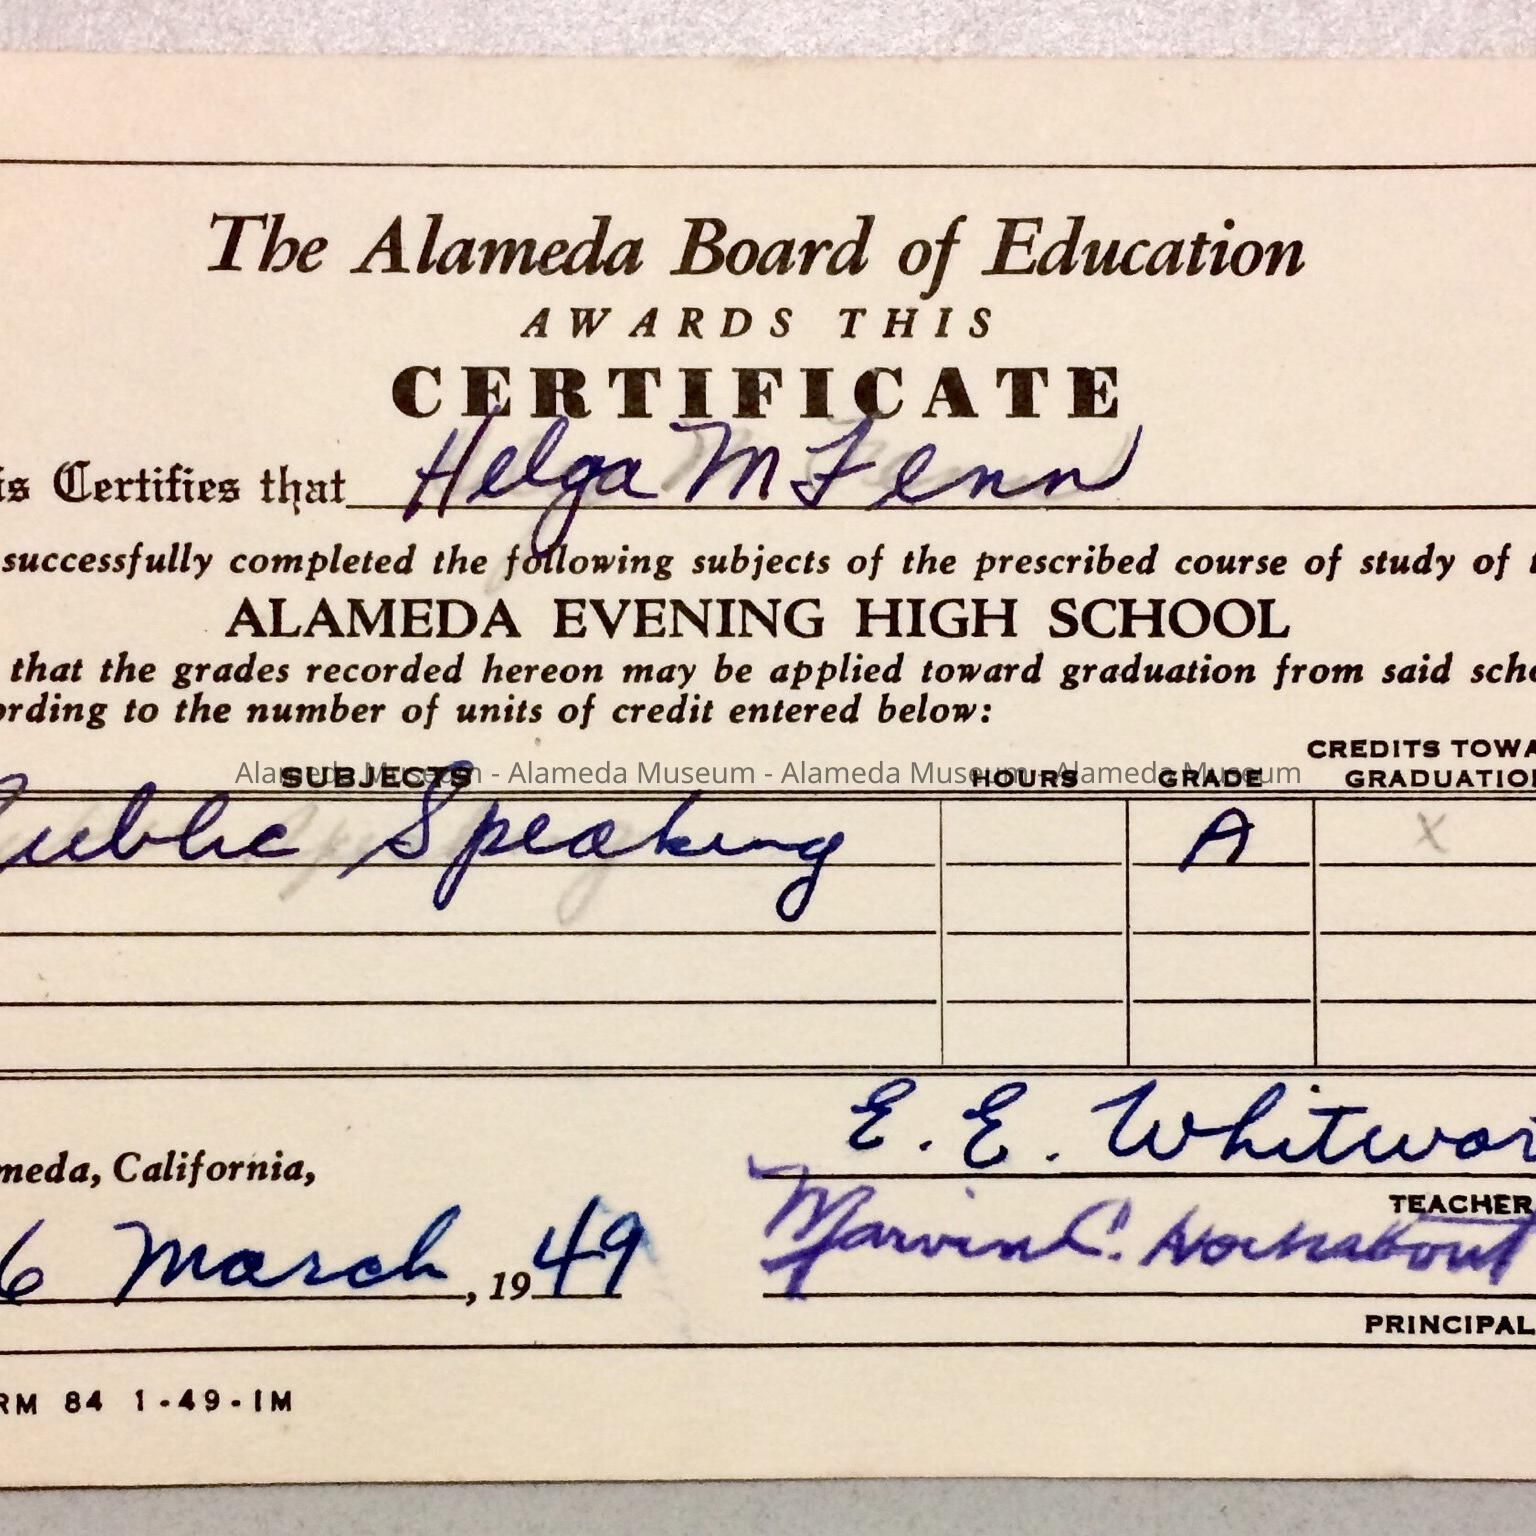 The Alameda Board of Education
AWARDS THIS
CERTIFICATE
is Certifies that Helga M Fenn
successfully completed the following subjects of the prescribed course of study of t
ALAMEDA EVENING HIGH SCHOOL
that the grades recorded hereon may be applied toward graduation from said scho
ording to the number of units of credit entered below:
SUBJECTS HOURS GRADE CREDITS TOWA
GRADUATION
Alameda Museum - Alameda Museum - Alameda Museum - Alameda Museum
Public Speaking A X
E. E. Whitwor
meda, California,
TEACHER
Marvin C.
6 March, 1949
PRINCIPAL
RM 84 1-49-1M